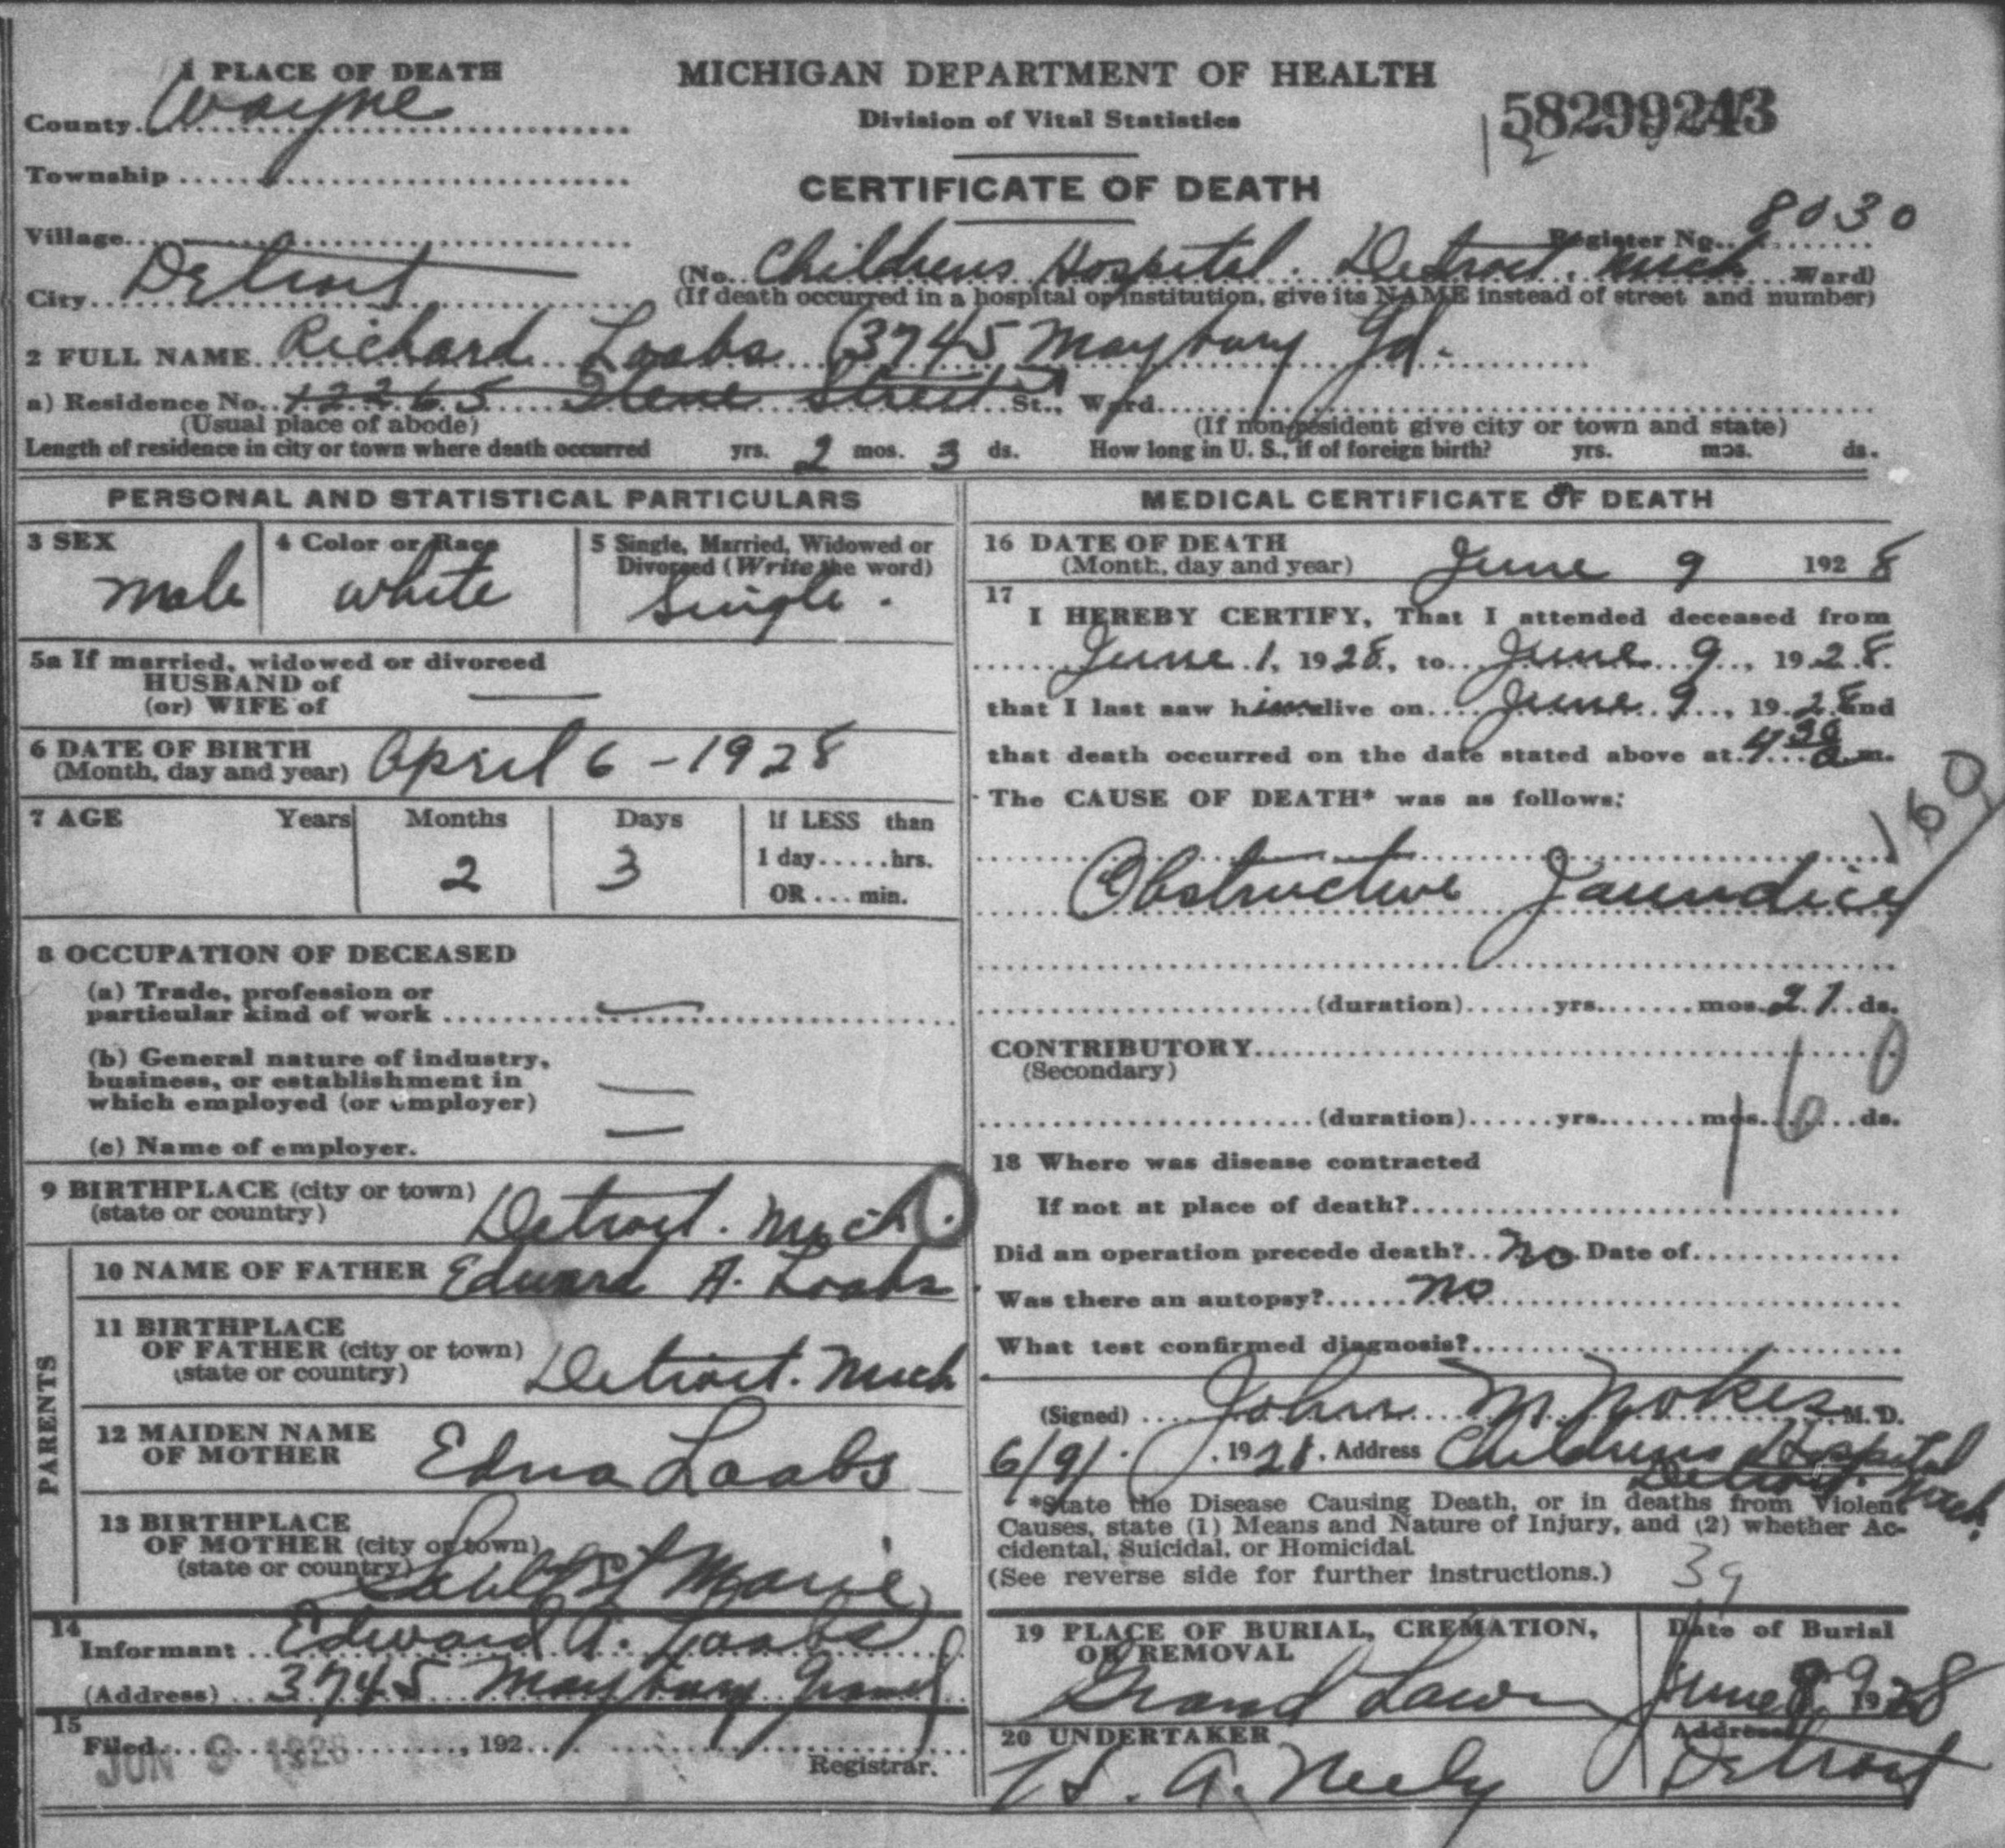 1 PLACE OF DEATH
County Wayne
Township
Village
City Detroit
MICHIGAN DEPARTMENT OF HEALTH
Division of Vital Statistics
58299243
CERTIFICATE OF DEATH
Register No. 8030
(No. Childrens Hospital. Detroit, Mich Ward)
(If death occurred in a hospital or institution, give its NAME instead of street and number)
2 FULL NAME Richard Loabs (3745 Maybury Gd.
a) Residence No. 12265 Ilene Street St., Ward
(Usual place of abode) (If non-resident give city or town and state)
Length of residence in city or town where death occurred yrs. 2 mos. 3 ds. How long in U. S., if of foreign birth? yrs. mos. ds.
PERSONAL AND STATISTICAL PARTICULARS
3 SEX
male
4 Color or Race
white
5 Single, Married, Widowed or
Divorced (Write the word)
Single.
5a If married, widowed or divorced
HUSBAND of
(or) WIFE of
6 DATE OF BIRTH
(Month, day and year) April 6 - 1928
7 AGE Years Months Days If LESS than
2 3 1 day.....hrs.
OR....min.
8 OCCUPATION OF DECEASED
(a) Trade, profession or
particular kind of work
(b) General nature of industry,
business, or establishment in
which employed (or employer)
(c) Name of employer.
9 BIRTHPLACE (city or town)
(state or country) Detroit. Mich.
PARENTS
10 NAME OF FATHER Edward A. Loabs
11 BIRTHPLACE
OF FATHER (city or town)
(state or country) Detroit. Mich
12 MAIDEN NAME
OF MOTHER Edna Loabs
13 BIRTHPLACE
OF MOTHER (city or town)
(state or country) Sault St Marie
14
Informant Edward A. Loabs
(Address) 3745 Maybury Grand
15
Filed JUN 9 1928, 192
Registrar.
MEDICAL CERTIFICATE OF DEATH
16 DATE OF DEATH
(Month, day and year) June 9 1928
17
I HEREBY CERTIFY, That I attended deceased from
June 1, 1928, to June 9, 1928.
that I last saw him alive on June 9, 1928 and
that death occurred on the date stated above at 4 30 a.m.
The CAUSE OF DEATH* was as follows:
160
Obstructive Jaundice
(duration) yrs. mos. 21 ds.
CONTRIBUTORY
(Secondary)
160
(duration) yrs. mos. ds.
18 Where was disease contracted
If not at place of death?
Did an operation precede death? No Date of
Was there an autopsy? No
What test confirmed diagnosis?
(Signed) John M Nokes M. D.
6/9/. 1928. Address Childrens Hospital
Detroit. Mich.
*State the Disease Causing Death, or in deaths from Violent
Causes, state (1) Means and Nature of Injury, and (2) whether Ac-
cidental, Suicidal, or Homicidal
(See reverse side for further instructions.) 39
19 PLACE OF BURIAL, CREMATION,
OR REMOVAL
Grand Lawn
Date of Burial
June 9 1928
20 UNDERTAKER
H. A. Neely
Address
Detroit